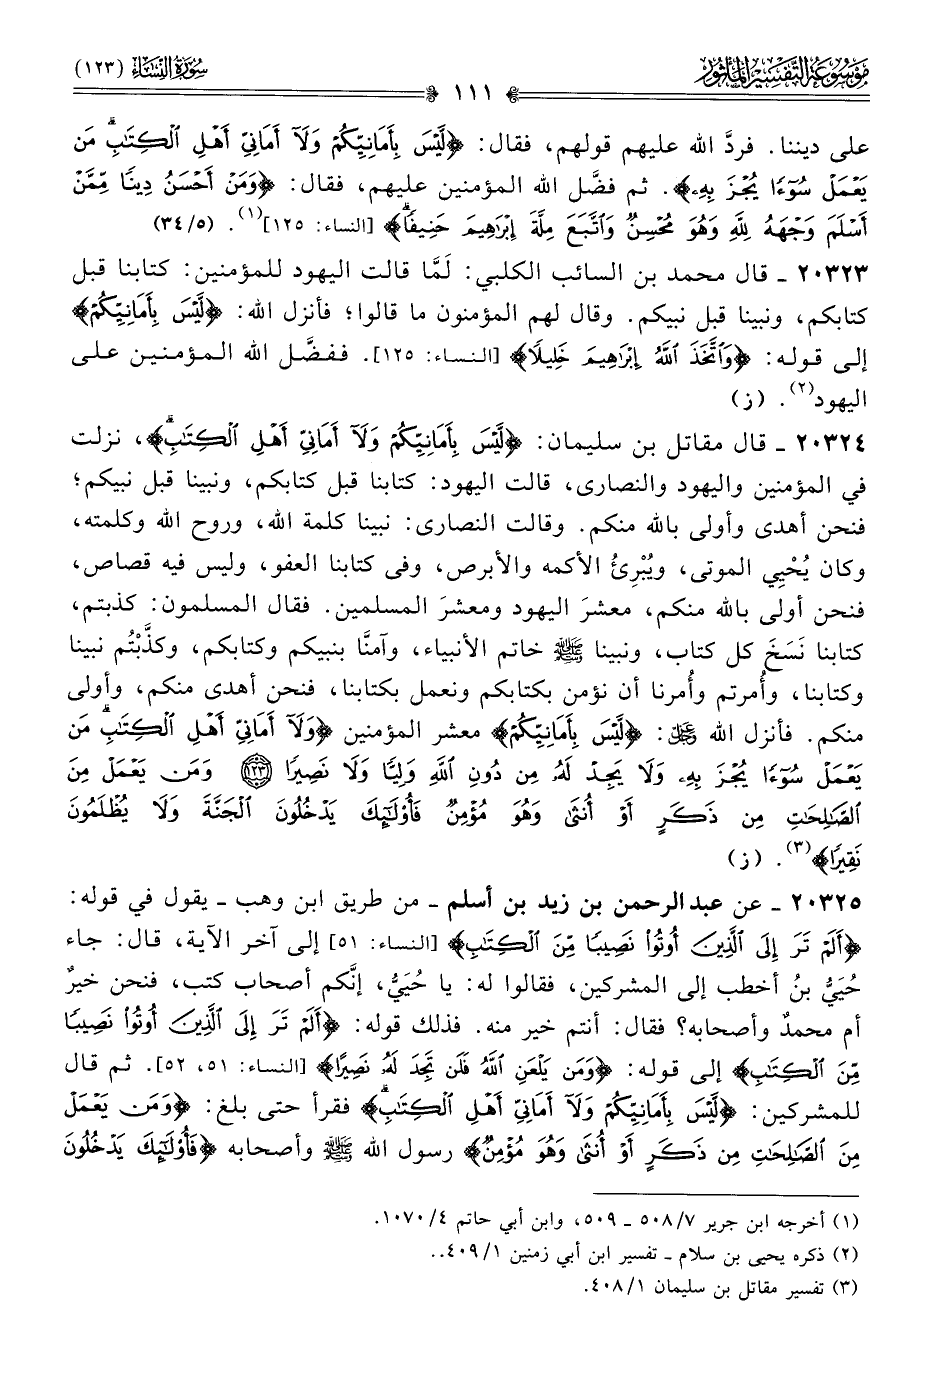 مَوْسُوعَةُ التَّفْسِيرِ المَأْثُورِ
١١١
سُورَةُ النِّسَاء (١٢٣)
على ديننا. فردَّ الله عليهم قولهم، فقال: ﴿لَّيْسَ بِأَمَانِيِّكُمْ وَلَآ أَمَانِيِّ أَهْلِ ٱلْكِتَٰبِۗ مَن
يَعْمَلْ سُوٓءًا يُجْزَ بِهِۦ﴾. ثم فضَّل الله المؤمنين عليهم، فقال: ﴿وَمَنْ أَحْسَنُ دِينًا مِّمَّنْ
أَسْلَمَ وَجْهَهُۥ لِلَّهِ وَهُوَ مُحْسِنٌ وَٱتَّبَعَ مِلَّةَ إِبْرَٰهِيمَ حَنِيفًاۗ﴾ [النساء: ١٢٥](١). (٣٤/٥)
٢٠٣٢٣ ـ قال محمد بن السائب الكلبي: لَمَّا قالت اليهود للمؤمنين: كتابنا قبل
كتابكم، ونبينا قبل نبيكم. وقال لهم المؤمنون ما قالوا؛ فأنزل الله: ﴿لَّيْسَ بِأَمَانِيِّكُمْ﴾
إلى قوله: ﴿وَٱتَّخَذَ ٱللَّهُ إِبْرَٰهِيمَ خَلِيلًا﴾ [النساء: ١٢٥]. ففضَّل الله المؤمنين على
اليهود(٢). (ز)
٢٠٣٢٤ ـ قال مقاتل بن سليمان: ﴿لَّيْسَ بِأَمَانِيِّكُمْ وَلَآ أَمَانِيِّ أَهْلِ ٱلْكِتَٰبِۗ﴾، نزلت
في المؤمنين واليهود والنصارى، قالت اليهود: كتابنا قبل كتابكم، ونبينا قبل نبيكم؛
فنحن أهدى وأولى بالله منكم. وقالت النصارى: نبينا كلمة الله، وروح الله وكلمته،
وكان يُحْيِي الموتى، ويُبْرِئُ الأكمه والأبرص، وفى كتابنا العفو، وليس فيه قصاص،
فنحن أولى بالله منكم، معشرَ اليهود ومعشرَ المسلمين. فقال المسلمون: كذبتم،
كتابنا نَسَخَ كل كتاب، ونبينا ﷺ خاتم الأنبياء، وآمنَّا بنبيكم وكتابكم، وكذَّبْتُم نبينا
وكتابنا، وأُمرتم وأُمرنا أن نؤمن بكتابكم ونعمل بكتابنا، فنحن أهدى منكم، وأولى
منكم. فأنزل الله ﷻ: ﴿لَّيْسَ بِأَمَانِيِّكُمْ﴾ معشر المؤمنين ﴿وَلَآ أَمَانِيِّ أَهْلِ ٱلْكِتَٰبِۗ مَن
يَعْمَلْ سُوٓءًا يُجْزَ بِهِۦ وَلَا يَجِدْ لَهُۥ مِن دُونِ ٱللَّهِ وَلِيًّا وَلَا نَصِيرًا ١٢٣ وَمَن يَعْمَلْ مِنَ
ٱلصَّٰلِحَٰتِ مِن ذَكَرٍ أَوْ أُنثَىٰ وَهُوَ مُؤْمِنٌ فَأُو۟لَٰٓئِكَ يَدْخُلُونَ ٱلْجَنَّةَ وَلَا يُظْلَمُونَ
نَقِيرًا﴾(٣). (ز)
٢٠٣٢٥ ـ عن عبدالرحمن بن زيد بن أسلم ـ من طريق ابن وهب ـ يقول في قوله:
﴿أَلَمْ تَرَ إِلَى ٱلَّذِينَ أُوتُوا۟ نَصِيبًا مِّنَ ٱلْكِتَٰبِ﴾ [النساء: ٥١] إلى آخر الآية، قال: جاء
حُيَيُّ بنُ أخطب إلى المشركين، فقالوا له: يا حُيَيُّ، إنَّكم أصحاب كتب، فنحن خيرٌ
أم محمدٌ وأصحابه؟ فقال: أنتم خير منه. فذلك قوله: ﴿أَلَمْ تَرَ إِلَى ٱلَّذِينَ أُوتُوا۟ نَصِيبًا
مِّنَ ٱلْكِتَٰبِ﴾ إلى قوله: ﴿وَمَن يَلْعَنِ ٱللَّهُ فَلَن تَجِدَ لَهُۥ نَصِيرًا﴾ [النساء: ٥١، ٥٢]. ثم قال
للمشركين: ﴿لَّيْسَ بِأَمَانِيِّكُمْ وَلَآ أَمَانِيِّ أَهْلِ ٱلْكِتَٰبِۗ﴾ فقرأ حتى بلغ: ﴿وَمَن يَعْمَلْ
مِنَ ٱلصَّٰلِحَٰتِ مِن ذَكَرٍ أَوْ أُنثَىٰ وَهُوَ مُؤْمِنٌ﴾ رسول الله ﷺ وأصحابه ﴿فَأُو۟لَٰٓئِكَ يَدْخُلُونَ
(١) أخرجه ابن جرير ٥٠٨/٧ ـ ٥٠٩، وابن أبي حاتم ١٠٧٠/٤.
(٢) ذكره يحيى بن سلام ـ تفسير ابن أبي زمنين ٤٠٩/١..
(٣) تفسير مقاتل بن سليمان ٤٠٨/١.